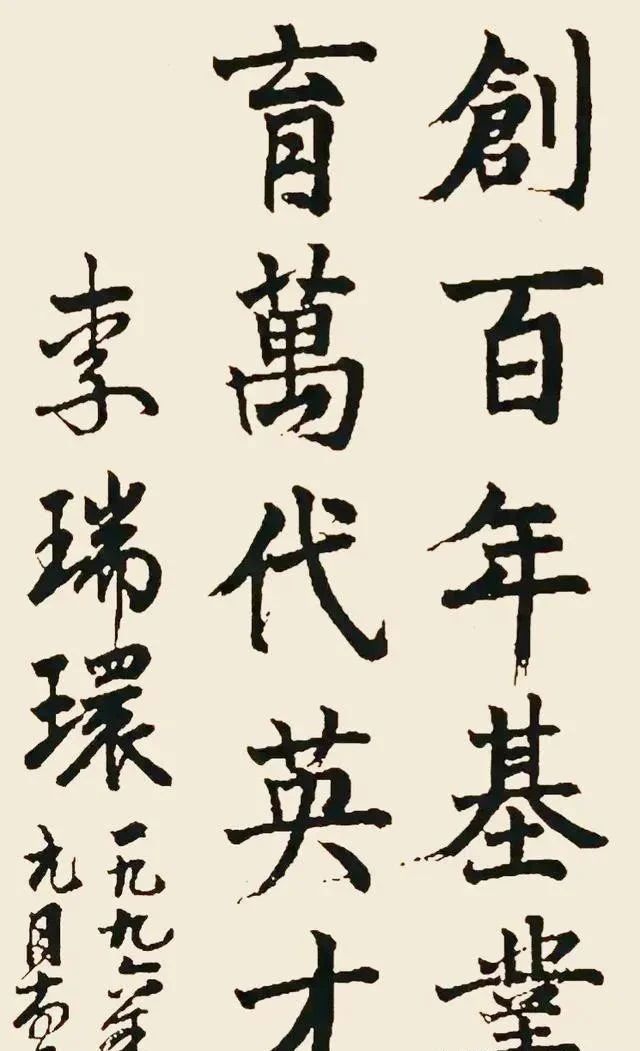 創百年基業
育萬代英才
李瑞環
一九九六年
九月